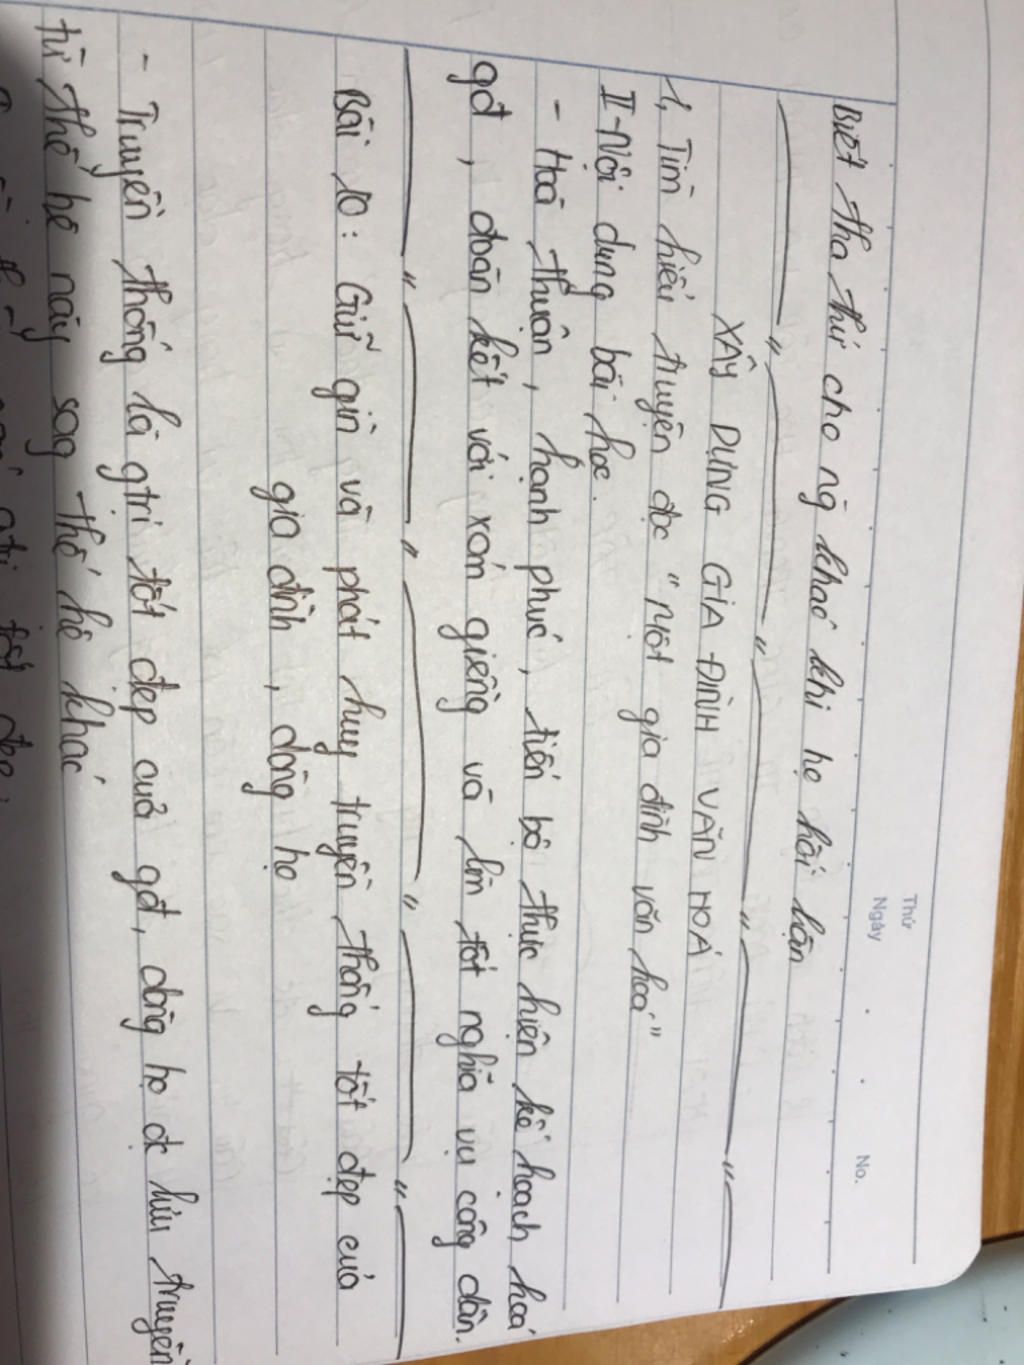 Thứ
Ngày
No.
Biết tha thứ cho ng khác khi họ hối hận
XÂY DỰNG GIA ĐÌNH VĂN HOÁ
1, Tìm hiểu truyện đọc "Một gia đình văn hoá"
II - Nội dung bài học.
- Hoà thuận, hạnh phúc, tiến bộ thực hiện kế hoạch hoá
gđ, đoàn kết với xóm giềng và làm tốt nghĩa vụ công dân.
Bài 10: Giữ gìn và phát huy truyền thống tốt đẹp của
gia đình, dòng họ
- Truyền thống là gtrị tốt đẹp của gđ, dòng họ đc lưu truyền
từ thế hệ này sag thế hệ khác
gtrị tốt đẹp